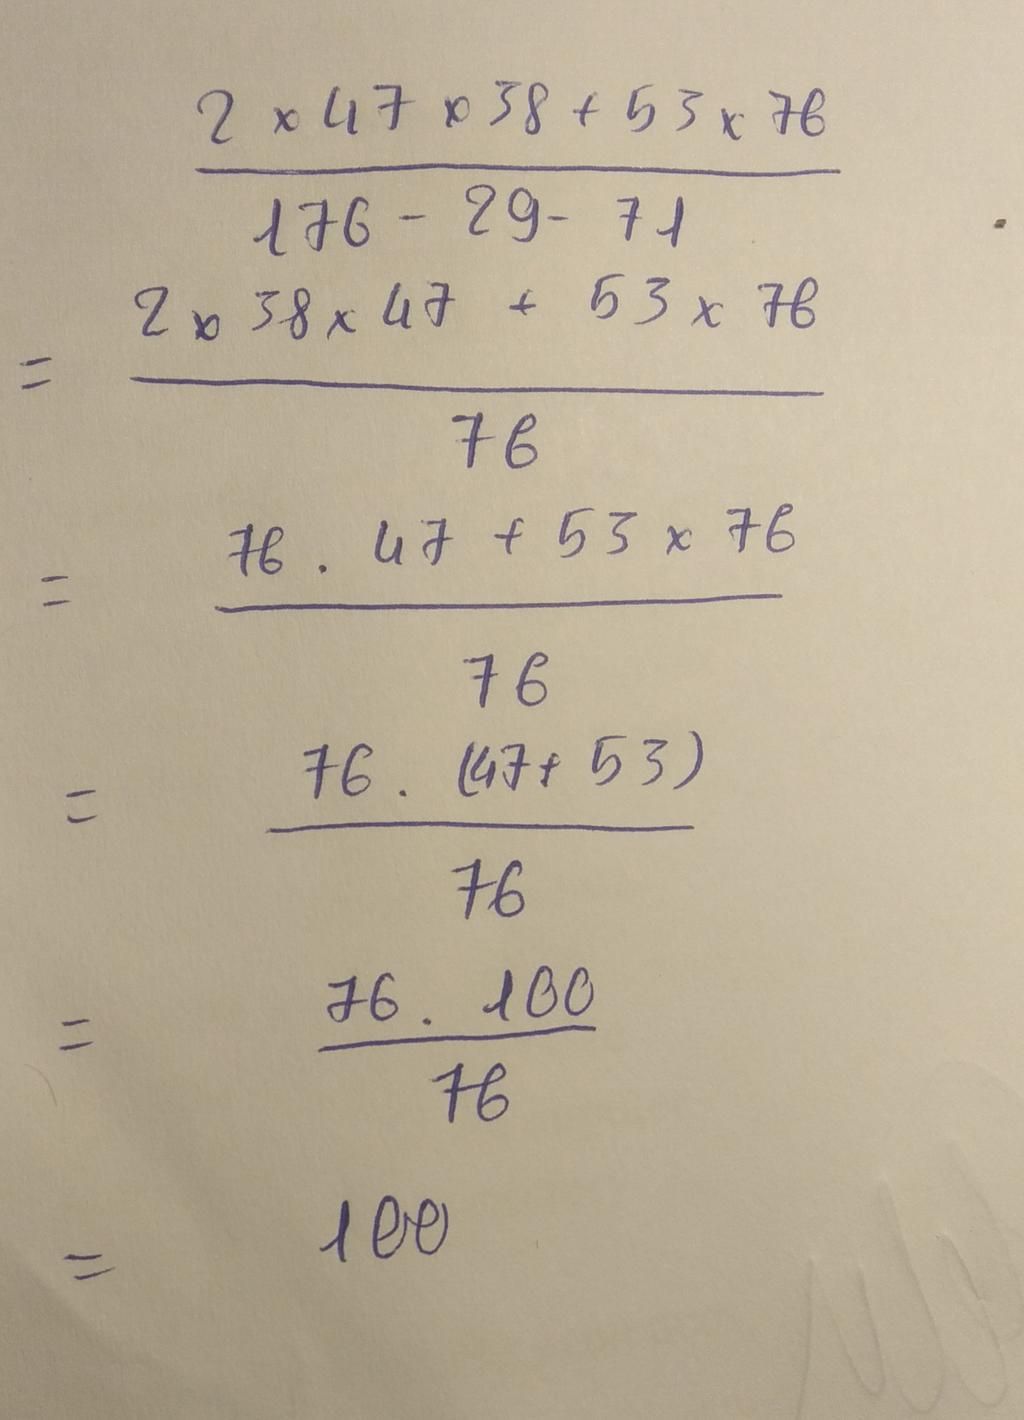 2 × 47 × 38 + 53 × 76
176 - 29 - 71
2 × 38 × 47 + 53 × 76
=
76
76 . 47 + 53 × 76
=
76
76 . (47 + 53)
=
76
76 . 100
=
76
100
=